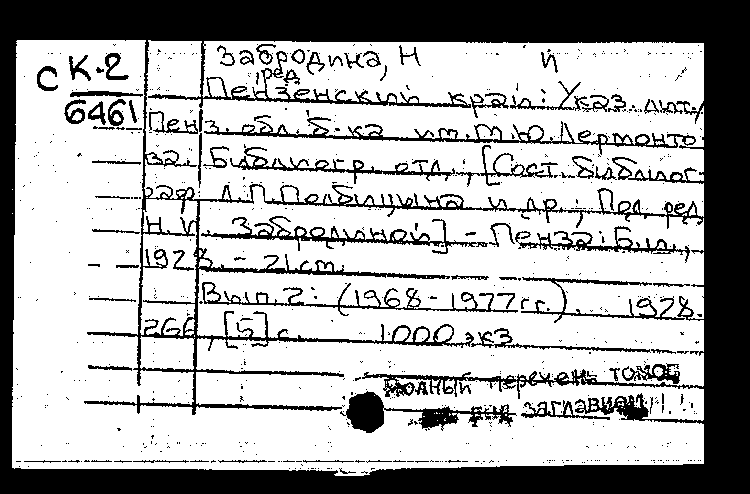 Забродина, Н И
ред
С К-2
6461
Пензенский край: Указ. лит./
Пенз. обл. б-ка им. М.Ю. Лермонто-
ва. Библиогр. отд.; [Сост. библиог-
раф Л.П. и др.; Под ред.
Н.И. Забродиной] - Пенза: Б.и.,
1978. - 21 cm.
Вып. 2: (1968-1977гг.). 1978.
266, [5] с. 1000 экз
Полный перечень томов
под заглавием!